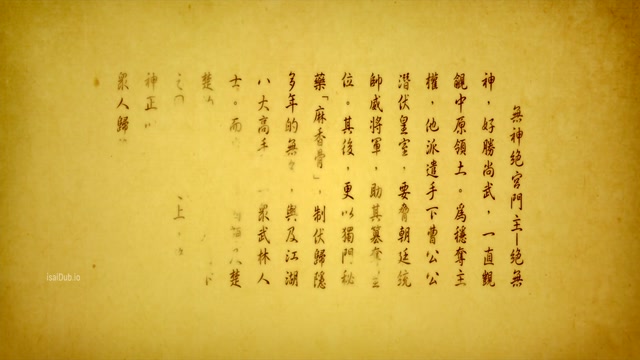 無神絕宮門主—絕無
神，好勝尚武，一直覬
覦中原領土。為穩奪主
權，他派遣手下曹公公
潛伏皇室，要脅朝廷統
帥威將軍，助其篡奪主
位。其後，更以獨門秘
藥「麻香骨」，制伏歸隱
多年的無名，與及江湖
八大高手 一眾武林人
士。而 楚
楚
之 上
神正
眾人歸
isaiDub.io